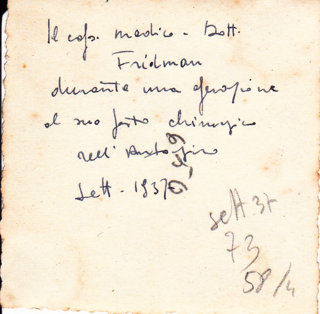 Il cap. medico - Dott.
Fridman
durante una operazione
al suo posto chirurgico
nell'
Sett. 1937
sett. 37
73
58/4